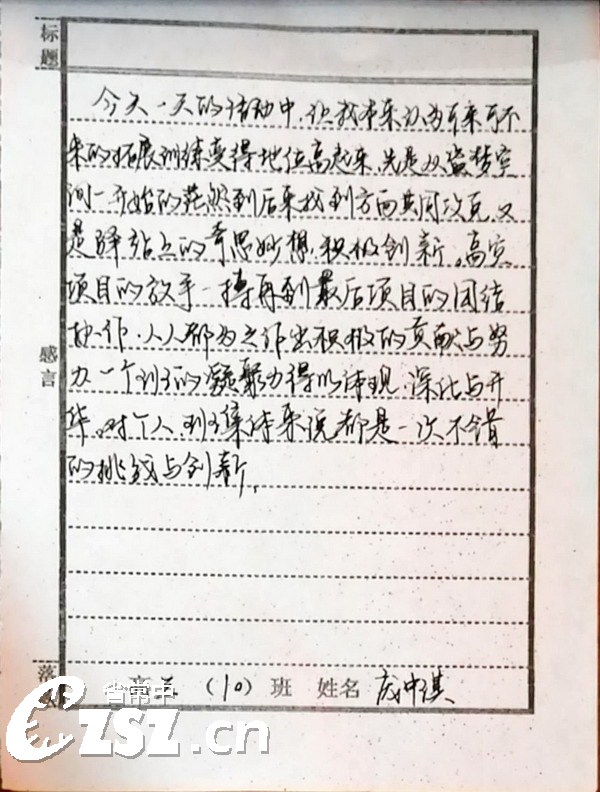 标题
今天一天的活动中,让我本来认为可来可不
来的拓展训练变得地位高起来,先是从盗梦空
间一开始的茫然到后来找到方向共同攻克,又
是驿站上的奇思妙想,积极创新。高空
项目的放手一搏再到最后项目的团结
协作,人人都为之作出积极的贡献与努
力一个班的凝聚力得以体现,深化与升
华。对个人、班集体来说都是一次不错
的挑战与创新。
感言
落
(10)班 姓名
省常中
CZSZ.cn